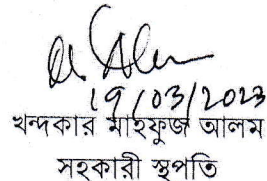 19/03/2023
খন্দকার মাহফুজ আলম
সহকারী স্থপতি